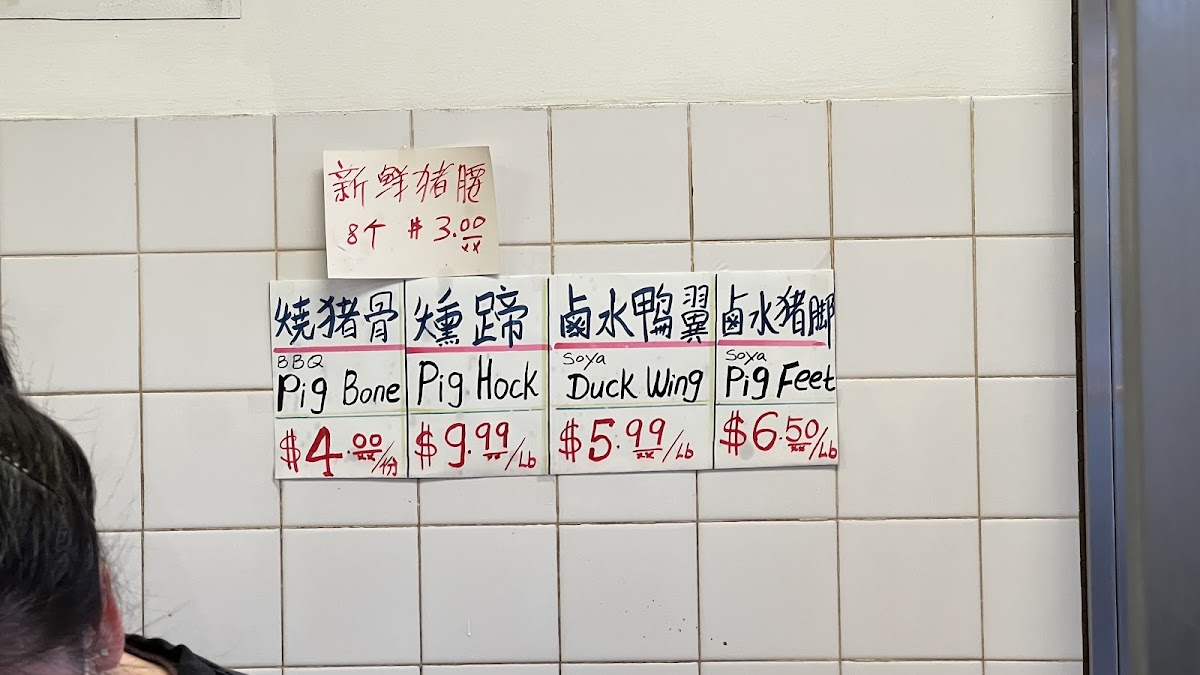 新鮮猪腰
8个 $3.00
燒猪骨
BBQ
Pig Bone
$4.00/份
燻蹄
Pig Hock
$9.99/Lb
鹵水鴨翼
Soya
Duck Wing
$5.99/Lb
鹵水猪脚
Soya
Pig Feet
$6.50/Lb